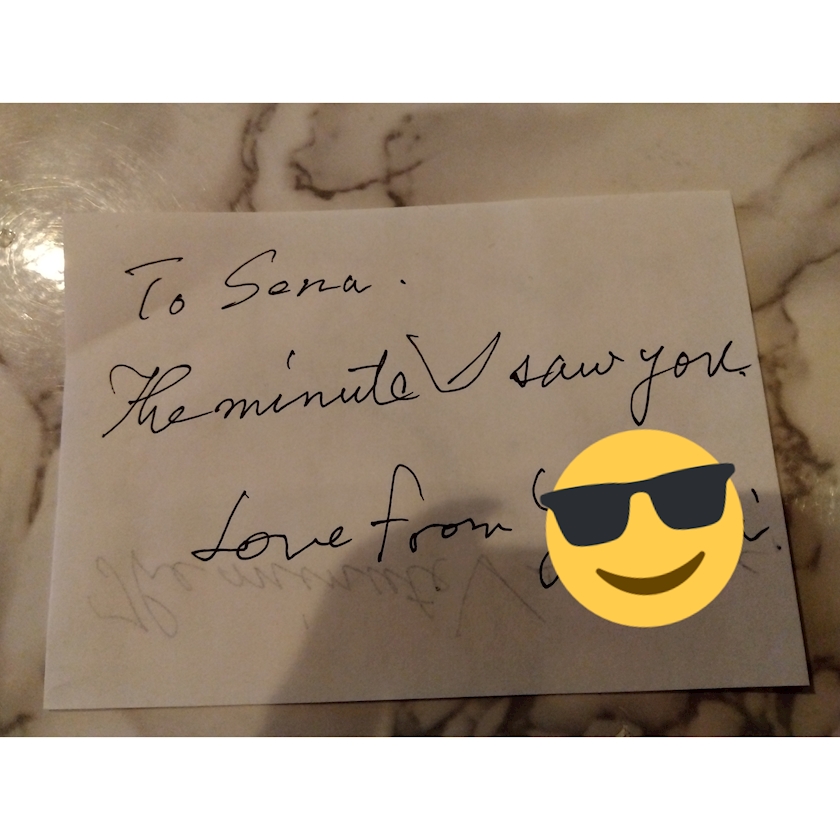 To Sena.
The minute I saw you.
Love from